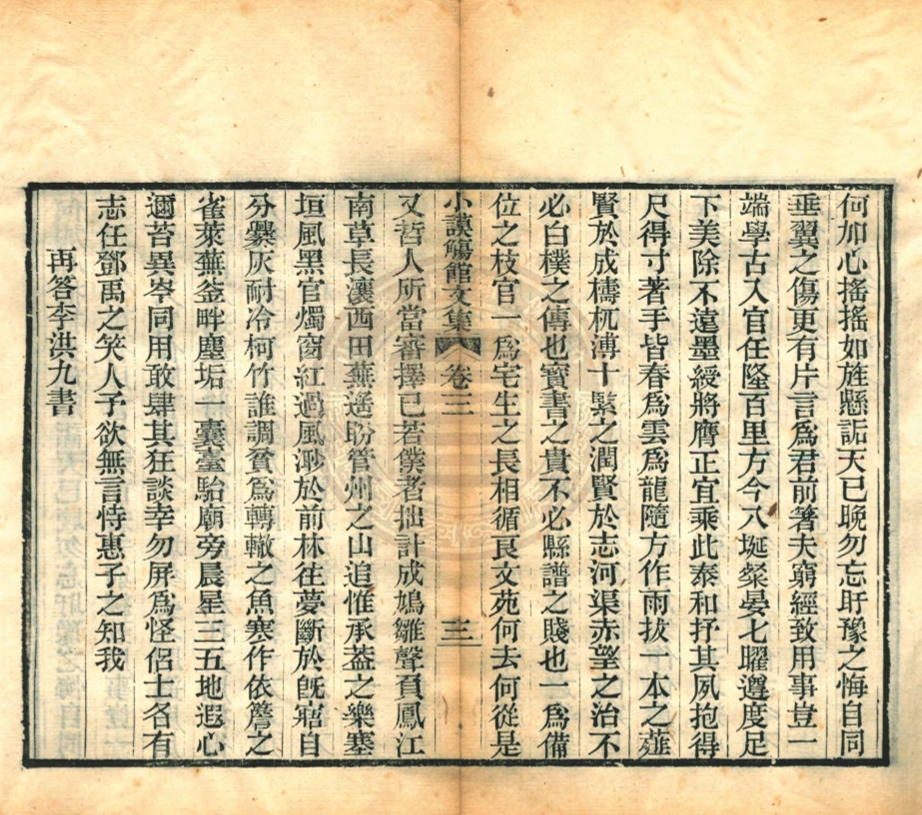 何如心搖搖如旌懸詬天已晚勿忘盱豫之悔自同
垂翼之傷更有片言爲君前箸夫窮經致用事豈一
端學古入官任隆百里方今八埏粲晏七曜遵度足
下美除不遠墨綬將膺正宜乘此泰和抒其夙抱得
尺得寸著手皆春爲雲爲龍隨方作雨拔一本之薤
賢於成檮杌溥十縣之潤賢於志河渠赤望之治不
必白樸之傳也寳書之貴不必縣譜之賤也一爲備
位之枝官一爲宅生之長相循良文苑何去何從是
小謨觴館文集 卷三 三
又哲人所當審擇已若僕者拙計成鳩雛聲負鳳江
南草長瀼西田蕪遙盼管州之山追惟承葢之樂塞
垣風黑官燭窗紅過風渺於前林往夢斷於旣寤自
分爨灰耐冷柯竹誰調貧爲轉轍之魚寒作依簷之
雀萊蕪釜畔塵垢一囊臺駘廟旁晨星三五地遐心
邇苔異岑同用敢肆其狂談幸勿屏爲怪侶士各有
志任鄧禹之笑人子欲無言恃惠子之知我
再答李洪九書